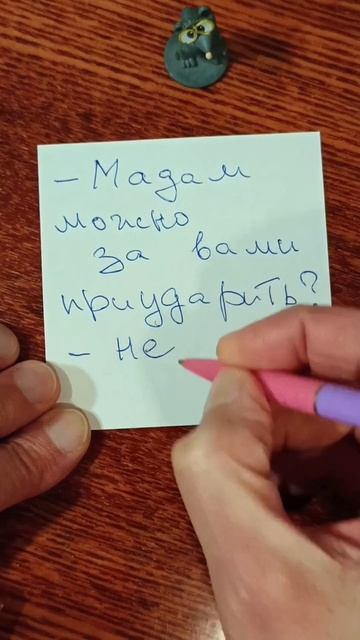 - Мадам
можно
за вами
приударить?
- не